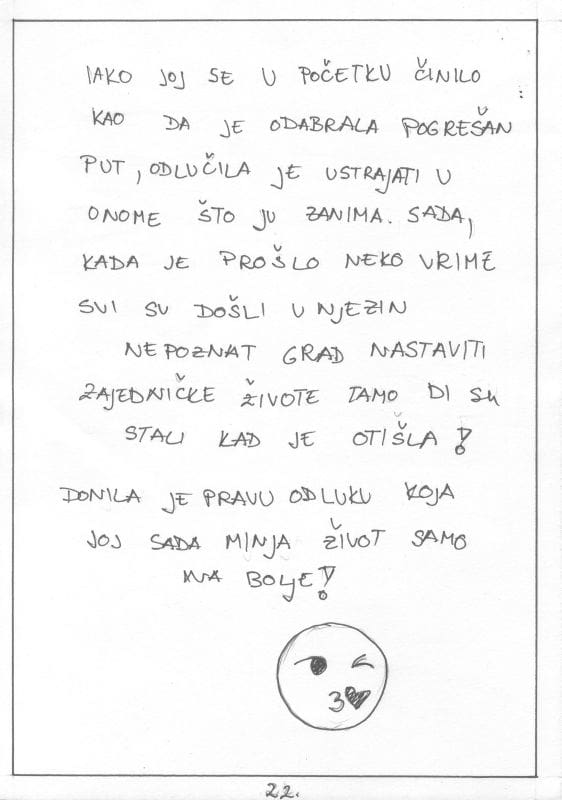 IAKO JOJ SE U POČETKU ČINILO
KAO DA JE ODABRALA POGREŠAN
PUT, ODLUČILA JE USTRAJATI U
ONOME ŠTO JU ZANIMA. SADA,
KADA JE PROŠLO NEKO VRIME
SVI SU DOŠLI U NJEZIN
NEPOZNAT GRAD NASTAVITI
ZAJEDNIČKE ŽIVOTE TAMO DI SU
STALI KAD JE OTIŠLA!
DONILA JE PRAVU ODLUKU KOJA
JOJ SADA MINJA ŽIVOT SAMO
NA BOLJE!
3
22.